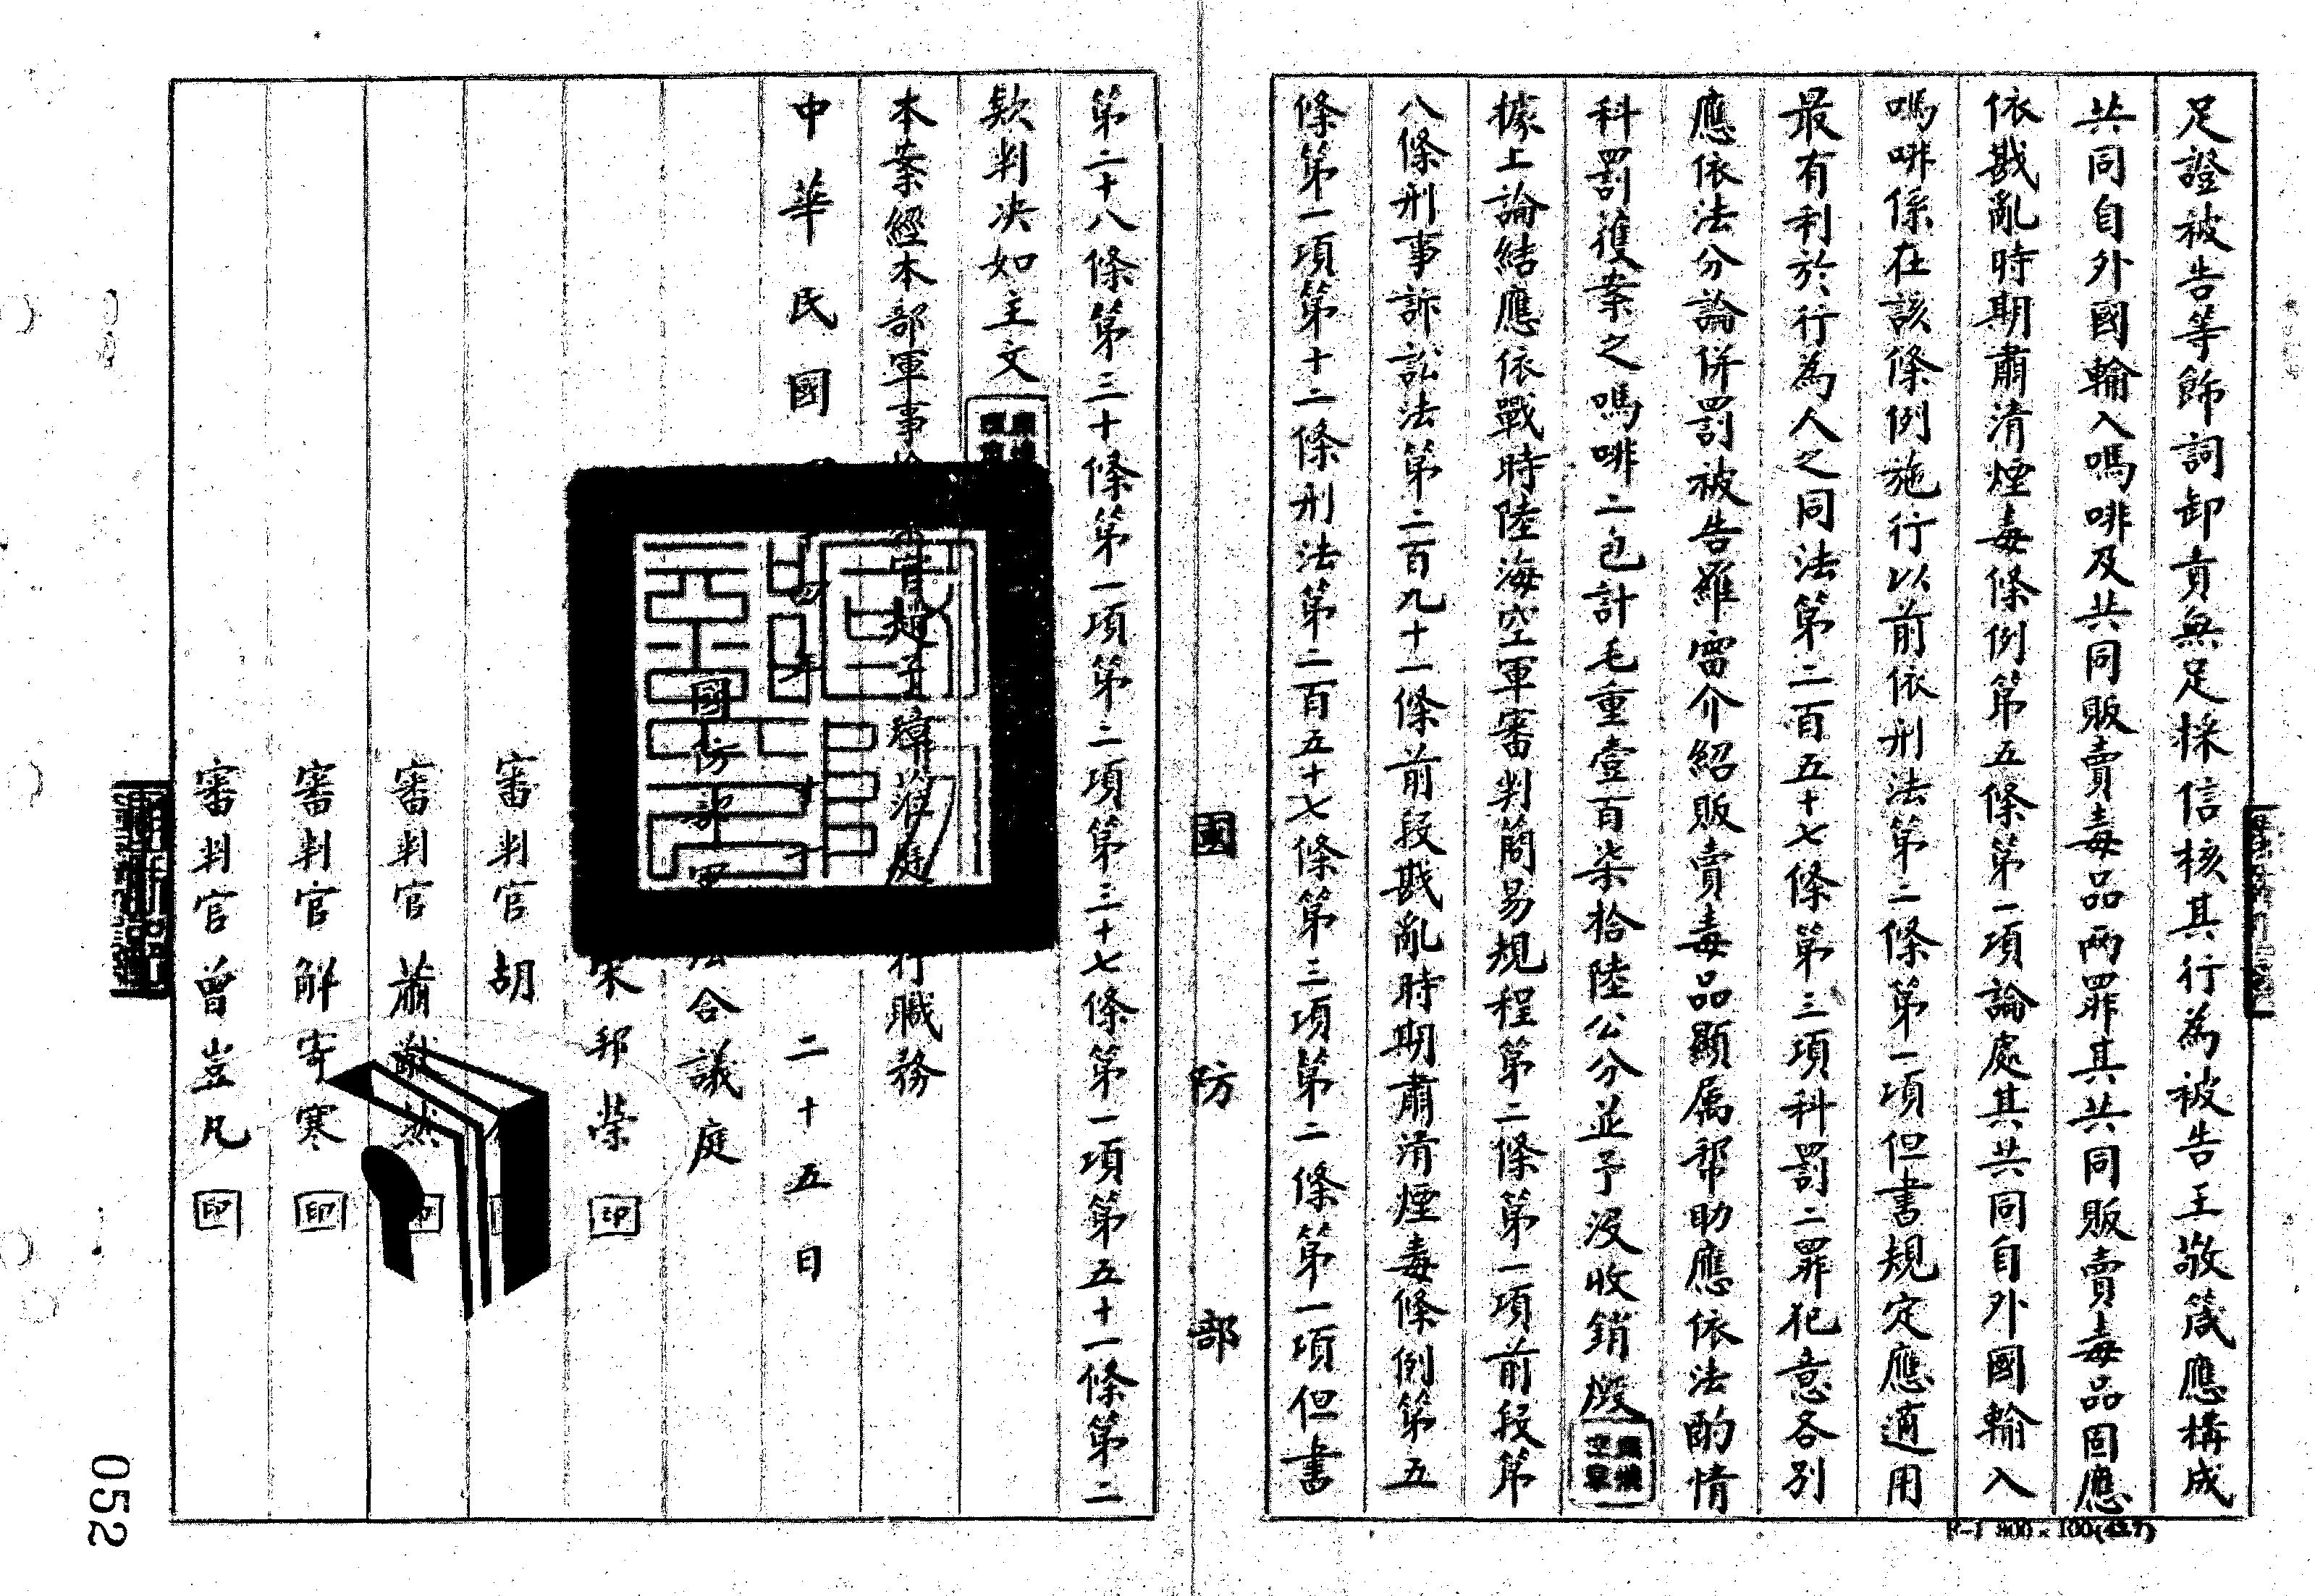 足證被告等飾詞卸責無足採信核其行為被告王敬箴應構成
共同自外國輸入嗎啡及共同販賣毒品兩罪其共同販賣毒品固應
依戡亂時期肅清煙毒條例第五條第一項論處其共同自外國輸入
嗎啡係在該條例施行以前依刑法第二條第一項但書規定應適用
最有利於行為人之同法第二百五十七條第三項科罰二罪犯意各別
應依法分論併罰被告羅雷介紹販賣毒品顯屬幫助應依法酌情
科罰獲案之嗎啡二包計毛重壹百柒拾陸公分並予沒收銷燬
據上論結應依戰時陸海空軍審判簡易規程第二條第一項前段第
八條刑事訴訟法第二百九十一條前段戡亂時期肅清煙毒條例第五
條第一項第十二條刑法第二百五十七條第三項第二條第一項但書
國防部
第二十八條第三十條第一項第二項第三十七條第一項第五十一條第二
款判決如主文
本案經本部軍事檢察官趙子瑋蒞庭行職務
中華民國四十四年十一二十五日
國防部軍法合議庭
宋邦榮 印
審判官 胡
審判官 蕭
審判官 解寄寒 印
審判官 曾豈凡 印
0552
F-1 800×100(43.7)